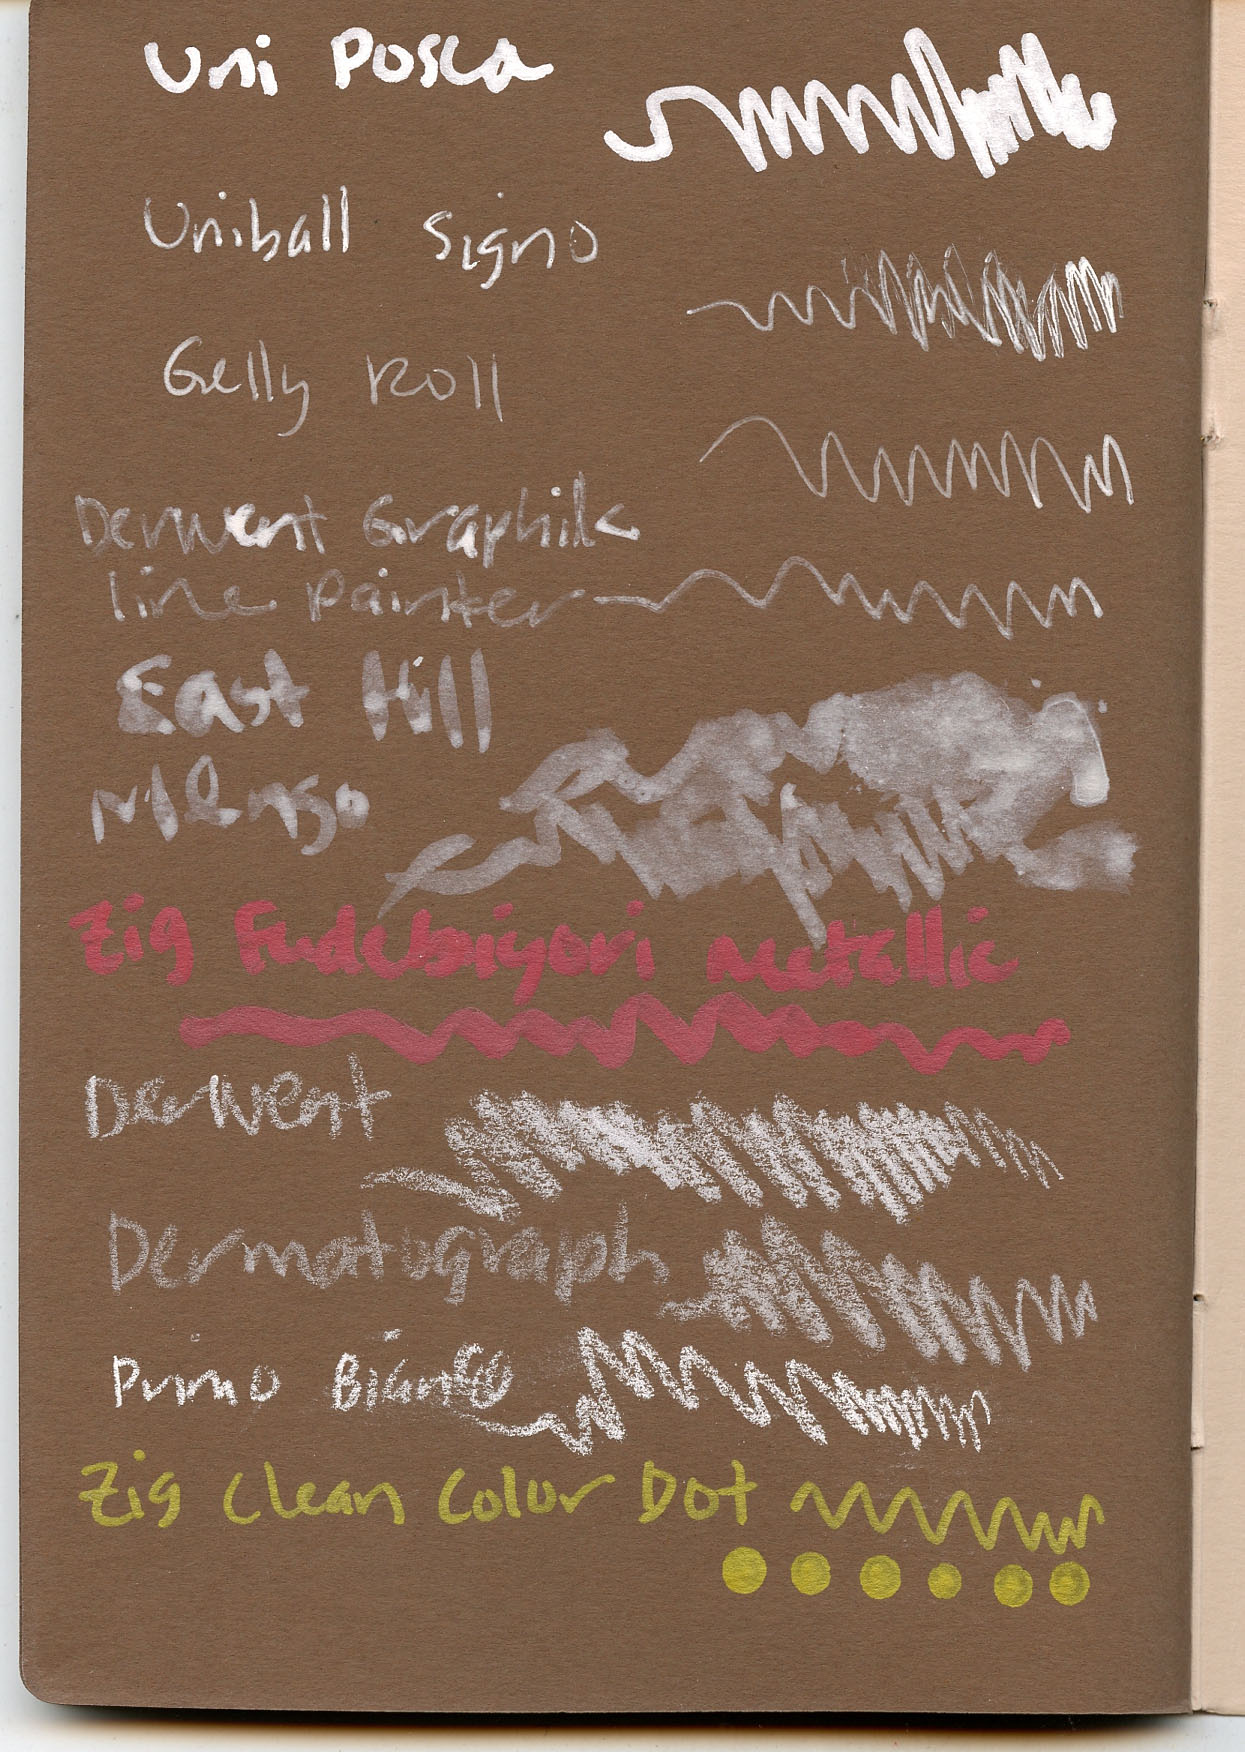 Uni Posca
Uniball Signo
Gelly Roll
Derwent Graphik
line Painter
East Hill
Zig Fudebiyori metallic
Derwent
Dermatograph
Primo Bianco
Zig Clean Color Dot